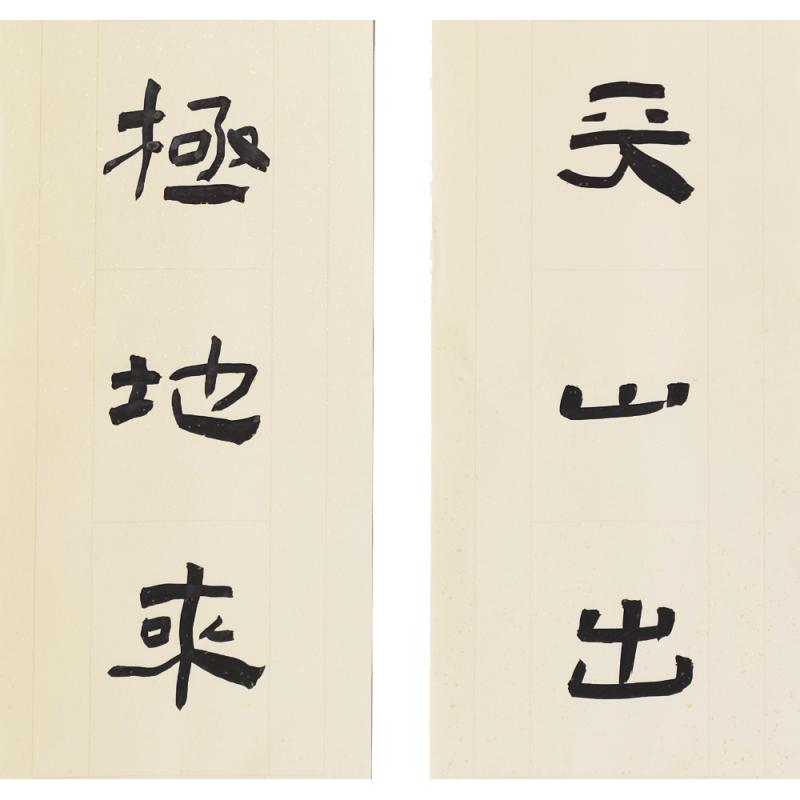 山出
極地來